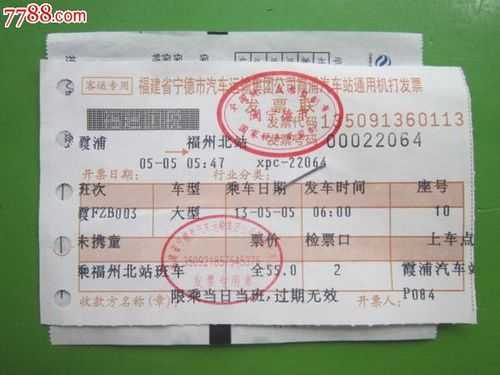 7788.com
客运专用
福建省宁德市汽车运输集团公司霞浦汽车站通用机打发票
发票联
发票代码 135091360113
发票号码 00022064
霞浦 福州北站
05-05 05:47 xpc-22064
开票日期: 行业分类:
班次 车型 乘车日期 发车时间 座号
霞FZB003 大型 13-05-05 06:00 10
未携童 票价 检票口 上车点
乘福州北站班车 全55.0 2 霞浦汽车站
限乘当日当班,过期无效 P084
收款方名称(章) 开票人:
350921857545375
发票专用章